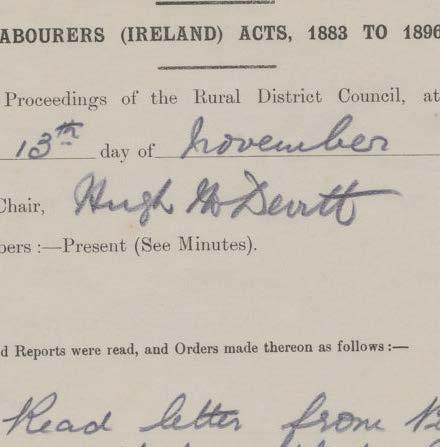 ABOURERS (IRELAND) ACTS, 1883 TO 1896
Proceedings of the Rural District Council, at
13th day of November
Chair, Hugh McDevitt
bers :—Present (See Minutes).
d Reports were read, and Orders made thereon as follows :—
Read letter from